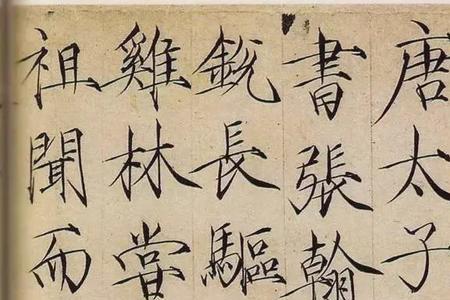 唐太子
書張翰
銳長驅
雞林嘗
祖聞而